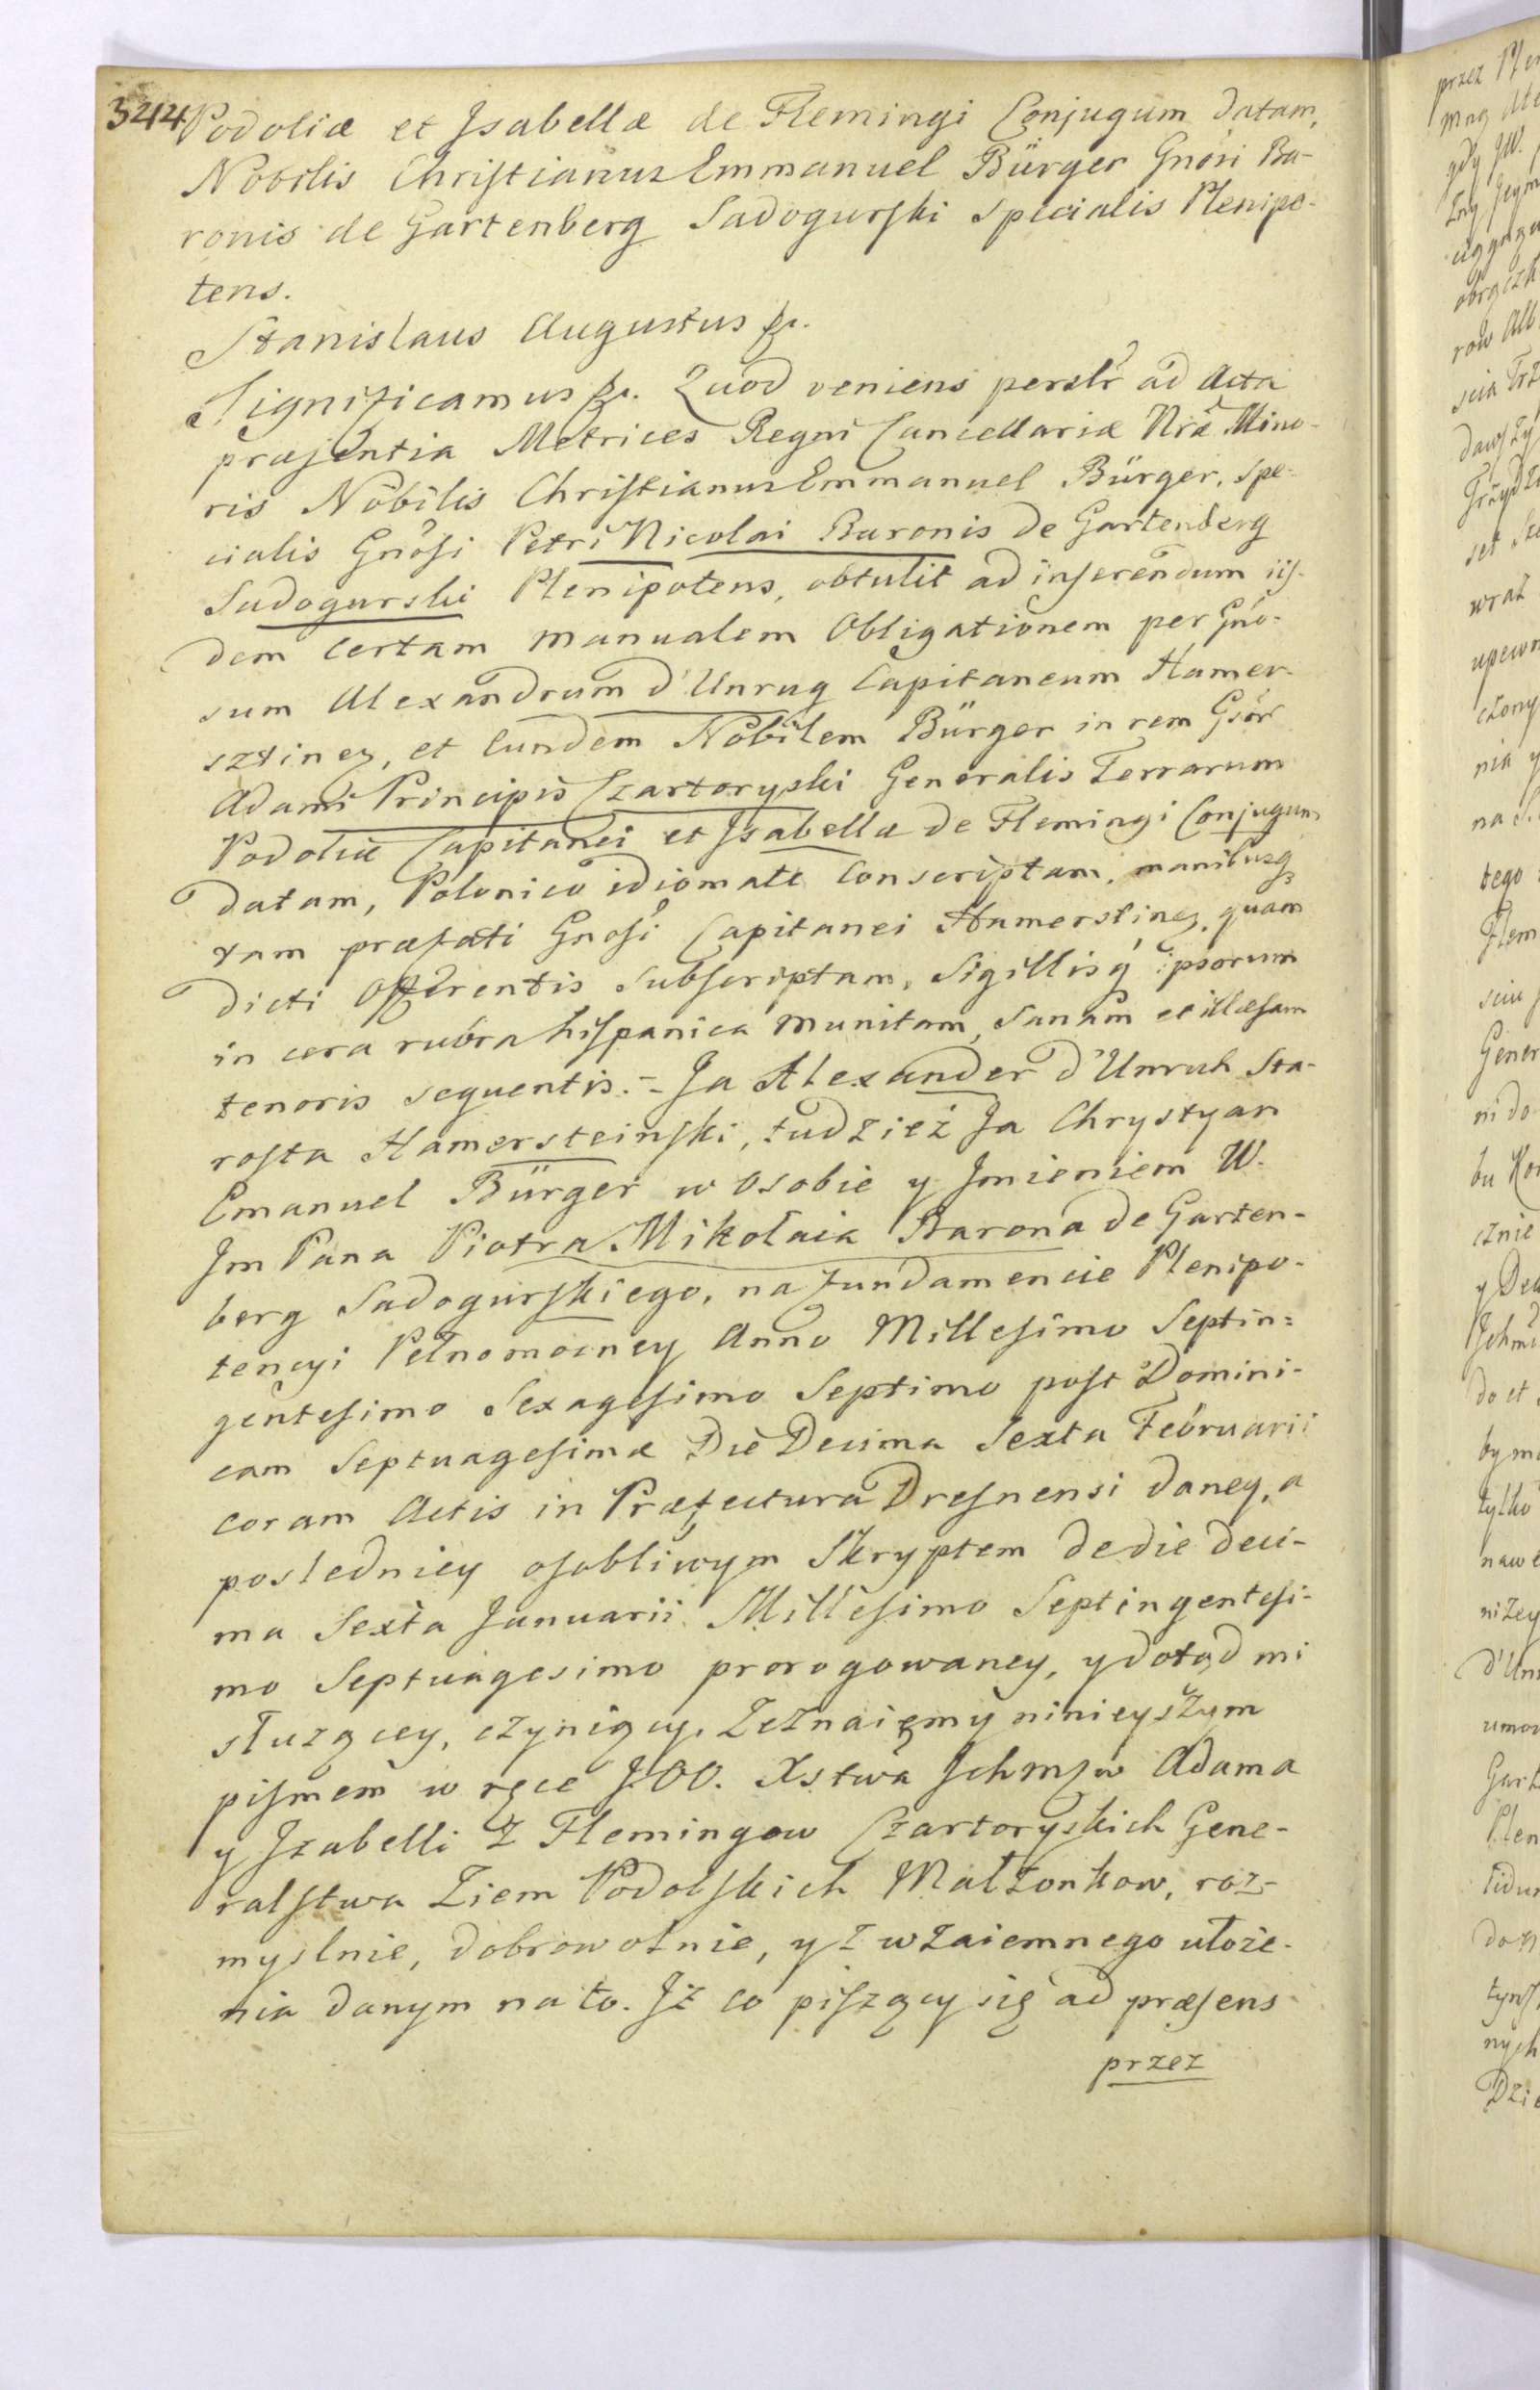 344 Podoliæ et Isabellæ de Flemingi Conjugum datam,
Nobilis Christianus Emmanuel Bürger Gnosi Ba-
ronis de Gartenberg Sadogurski specialis Plenipo-
tens.
Stanislaus Augustus &c.
Significamus &c. Quod veniens personalr ad Acta
præsentia Metrices Regni Cancellariæ Nræ Mino-
ris Nobilis Christianus Emmanuel Bürger, spe-
cialis Gnosi Petri Nicolai Baronis de Gartenberg
Sadogurski Plenipotens, obtulit ad inserendum iis-
dem certam manualem Obligationem per Gno-
sum Alexandrum d'Unrug Capitaneum Hamer-
sztinen, et eundem Nobilem Bürger in rem Gsor
Adami Principis Czartoryski Generalis Terrarum
Podoliæ Capitanei et Isabellæ de Flemingi Conjugum
datam, Polonico idiomate conscriptam, manibusq
tam præfati Gnosi Capitanei Hamerstinen, quam
dicti Offerentis subscriptam, Sigillisq ipsorum
in cera rubra hispanica munitam, sanam et illæsam
tenoris sequentis. - Ja Alexander d'Unruh Sta-
rosta Hamersteinski, tudzież Ja Chrystyan
Emanuel Bürger w Osobie y Jmieniem W.
Jm Pana Piotra Mikołaia Barona de Garten-
berg Sadogurskiego, na fundamencie Plenipo-
tencyi Pełnomocney Anno Millesimo Septin=
gentesimo Sexagesimo Septimo post Domini-
cam Septuagesimæ Die Decima Sexta Februarii
coram Actis in Præfectura Dresnensi daney, a
posledniey osobliwym Skryptem de die deci-
ma Sexta Januarii Millesimo Septingentesi-
mo Septuagesimo prorogowaney, y dotąd mi
służącey, czyniący. Zeznaięmy ninieyszym
pismem w ręce J.OO. Xstwa Jchmsw Adama
y Jzabelli z Flemingow Czartoryskich Gene-
ralstwa Ziem Podolskich Małżonkow, roz-
myslnie, dobrowolnie, y z wzaiemnego ułoże-
nia danym na to. Jż co piszący się ad præsens
przez